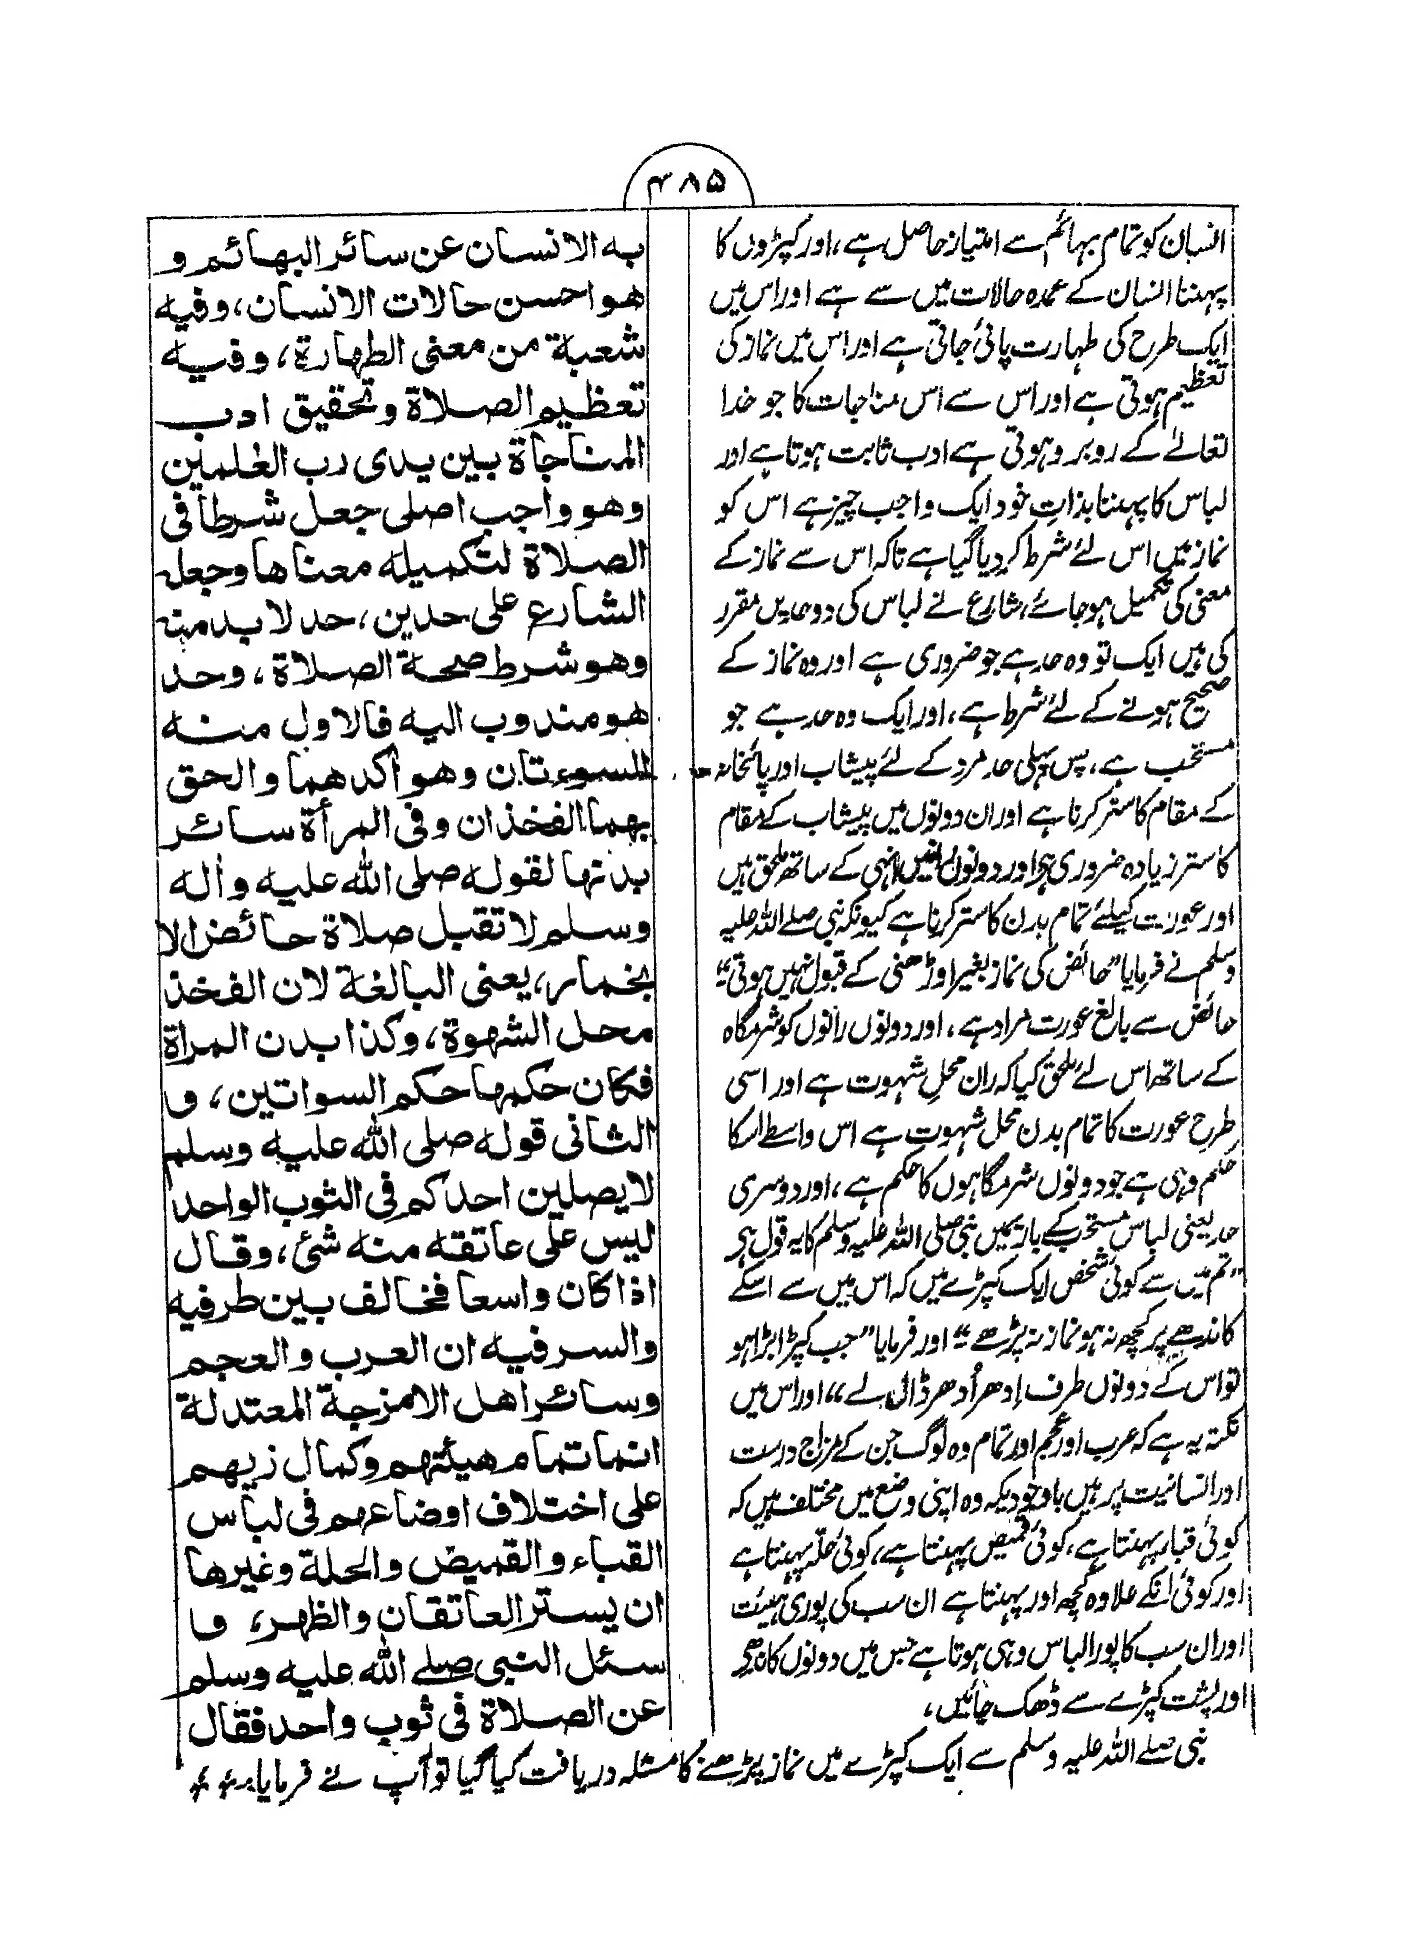 ۴۸۵
انسان کو تمام بہائم سے امتیاز حاصل ہے، اور کپڑوں کا
پہننا انسان کے عمدہ حالات میں سے ہے اور اس میں
ایک طرح کی طہارت پائی جاتی ہے اور اس میں نماز کی
تعظیم ہوتی ہے اور اس سے اس مناجات کا جو خدا
تعالےٰ کے روبرو ہوتی ہے ادب ثابت ہوتا ہے اور
لباس کا پہننا بذاتِ خود ایک واجب چیز ہے اس کو
نماز میں اس لئے شرط کر دیا گیا ہے تاکہ اس سے نماز کے
معنی کی تکمیل ہو جائے، شارع نے لباس کی دو حدیں مقرر
کی ہیں ایک تو وہ حد ہے جو ضروری ہے اور وہ نماز کے
صحیح ہونے کے لئے شرط ہے، اور ایک وہ حد ہے جو
مستحب ہے، پس پہلی حد مرد کے لئے پیشاب اور پائخانہ
کے مقام کا ستر کرنا ہے اور ان دونوں میں پیشاب کے مقام
کا ستر زیادہ ضروری ہے اور دونوں رانیں انہی کے ساتھ ملحق ہیں
اور عورت کیلئے تمام بدن کا ستر کرنا ہے کیونکہ نبی صلے اللہ علیہ
وسلم نے فرمایا ”حائض کی نماز بغیر اوڑھنی کے قبول نہیں ہوتی“
حائض سے بالغ عورت مراد ہے، اور دونوں رانوں کو شرمگاہ
کے ساتھ اس لئے ملحق کیا کہ ران محلِ شہوت ہے اور اسی
طرح عورت کا تمام بدن محل شہوت ہے اس واسطے اسکا
حکم وہی ہے جو دونوں شرمگاہوں کا حکم ہے، اور دوسری
حد یعنی لباس مستحب کے بارہ میں نبی صلی اللہ علیہ وسلم کا یہ قول ہے
”تم میں سے کوئی شخص ایک کپڑے میں کہ اس میں سے اسکے
کاندھے پر کچھ نہ ہو نماز نہ پڑھے“ اور فرمایا ”جب کپڑا بڑا ہو
تو اس کے دونوں طرف اِدھر اُدھر ڈال لے“ اور اس میں
نکتہ یہ ہے کہ عرب اور عجم اور تمام وہ لوگ جن کے مزاج درست
اور انسانیت پر ہیں باوجودیکہ وہ اپنی وضع میں مختلف ہیں کہ
کوئی قباء پہنتا ہے، کوئی قمیص پہنتا ہے، کوئی حلّہ پہنتا ہے
اور کوئی انکے علاوہ کچھ اور پہنتا ہے ان سب کی پوری ہیئت
اور ان سب کا پورا لباس وہی ہوتا ہے جس میں دونوں کاندھے
اور پشت کپڑے سے ڈھک جائیں،
به الانسان عن سائر البهائم و
هو احسن حالات الانسان، وفيه
شعبة من معنى الطهارة، وفيه
تعظيم الصلاة وتحقيق ادب
المناجاة بين يدى رب العٰلمين
وهو واجب اصلى جعل شرطا فى
الصلاة لتكميله معناها وجعل
الشارع على حدين، حد لا بد منه
وهو شرط صحة الصلاة، وحد
هو مندوب اليه فالاول منه
للسوءتان وهو أكدهما والحق
بهما الفخذان وفى المرأة سائر
بدنها لقوله صلى الله عليه وأله
وسلم لا تقبل صلاة حائض الا
بخمار، يعنى البالغة لان الفخذ
محل الشهوة، وكذا بدن المرأة
فكان حكمها حكم السواتين، و
الثانى قوله صلى الله عليه وسلم
لا يصلين احدكم فى الثوب الواحد
ليس على عاتقه منه شئ، وقال
اذا كان واسعا فخالف بين طرفيه
والسر فيه ان العرب والعجم
وسائر اهل الامزجة المعتدلة
انما تمام هيئتهم وكمال زيهم
على اختلاف اوضاعهم فى لباس
القباء والقميص والحلة وغيرها
ان يستر العاتقان والظهر، و
سئل النبى صلے الله عليه وسلم
عن الصلاة فى ثوب واحد فقال
نبی صلے اللہ علیہ وسلم سے ایک کپڑے میں نماز پڑھنے کا مسئلہ دریافت کیا گیا تو آپ نے فرمایا: